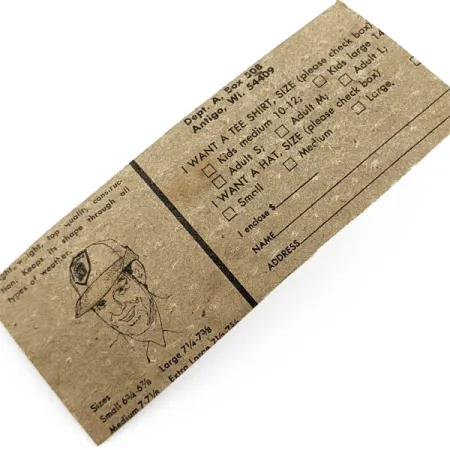 ght w ight, top quality construc-
tion. Keeps its shape through all
types of weather.
Sizes
Small 6¾-6⅞ Large 7¼-7⅜
Medium 7-7⅛ Extra Large 7½-7⅝
Dept. A, Box 508
Antigo, WI. 54409
I WANT A TEE SHIRT, SIZE (please check box)
☐ Kids medium 10-12; ☐ Kids large 14
☐ Adult S; ☐ Adult M; ☐ Adult L;
I WANT A HAT, SIZE (please check box)
☐ Small ☐ Medium ☐ Large
I enclose $
NAME
ADDRESS